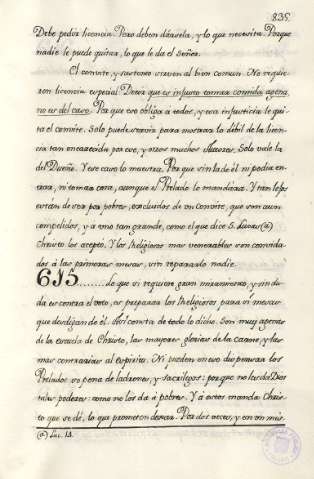 835.
Debe pedir licencia. Pero deben dársela, y lo que necesita. Porque
nadie le puede quitar, lo que le da el Señor.
El convite, y sustento sirven al bien comun. No requie-
ren licencia especial. Decir que es injusto comer comida agena,
no es del caso. Por que eso obliga a todos, y era injusticia le qui-
ta el convite. Solo puede servir para mostrar lo débil de la licen-
cia tan encarecida por eso, y otros muchos Autores. Solo vale la
del Dueño. Y ese caso lo muestra. Por que sin la de él ni podia en-
trar, ni tomar cosa, aunque el Prelado lo mandára. Y tan lejos
están de ser por pobres, excluidos de un convite, que son aun
compelidos, y à uno tan grande, como el que dice S. Lucas (a)
Christo los acepto. Y los Religiosos mas venerables son convida-
dos á las primeras mesas, sin repararlo nadie.
615........ Lo que si requiere gran miramiento, y sin du-
da es contra el voto, es preparar los Religiosos para si mesas
que desdigan de él. Asi consta de todo lo dicho. Son muy agenas
de la escuela de Christo, las mayores glorias de la carne, y las
mas contrarias al espiritu. Ni pueden en eso dispensar los
Prelados so pena de ladrones, y sacrilegos: por que no les da Dios
tales poderes: como no los da á pobres. Y á estos manda Chris-
to que se dé, lo que prometen dexar. Por dos veces, y en un mis-
(a) Luc. 14.